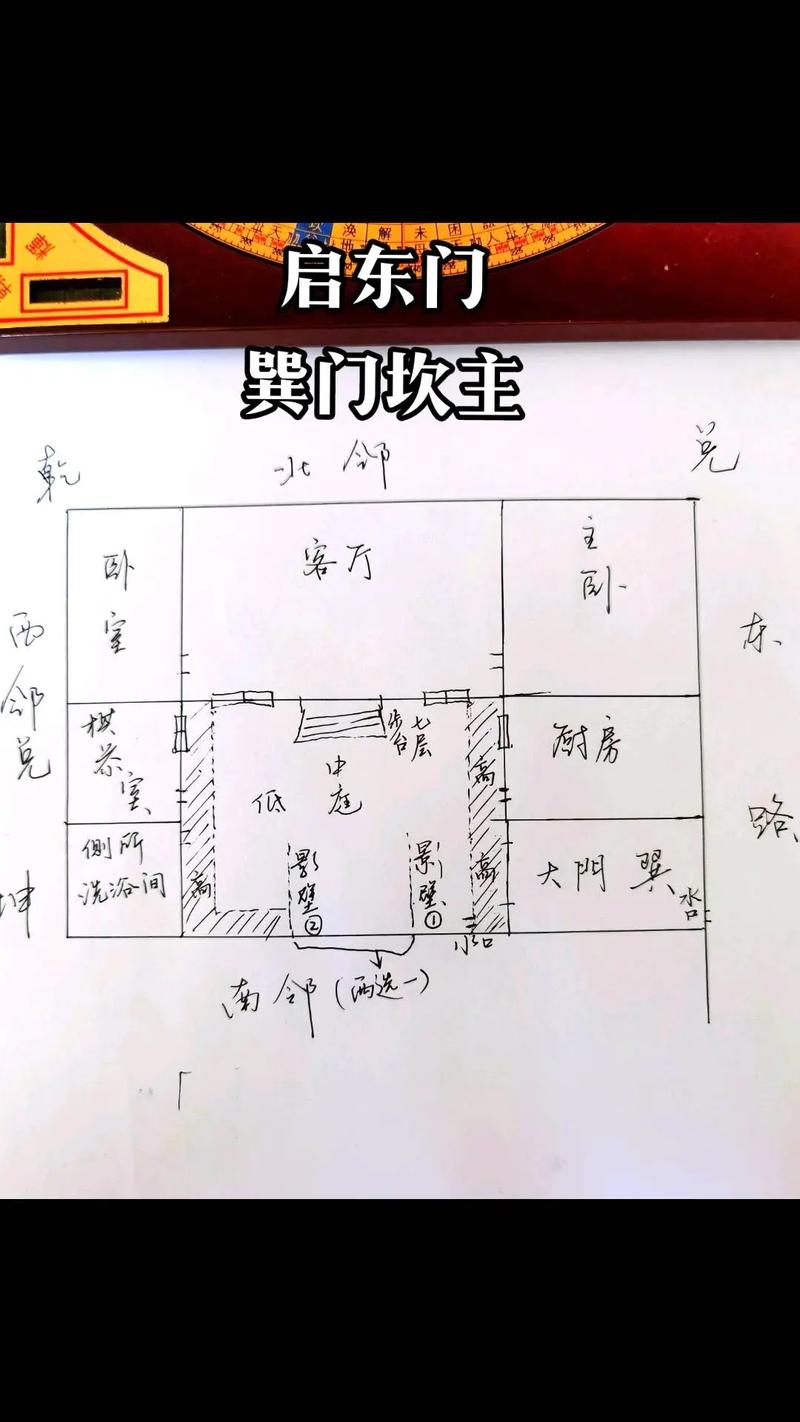 涣 解 未 困
启东门
巽门坎主
乾
北邻
兑
卧室
客厅
主卧
西邻兑
东路
棋茶室
七层
步台
高
厨房
中庭
低
侧所
洗浴间
高
影壁②
影壁①
高
大門 巽
水口
坤
水口
南邻(两选一)